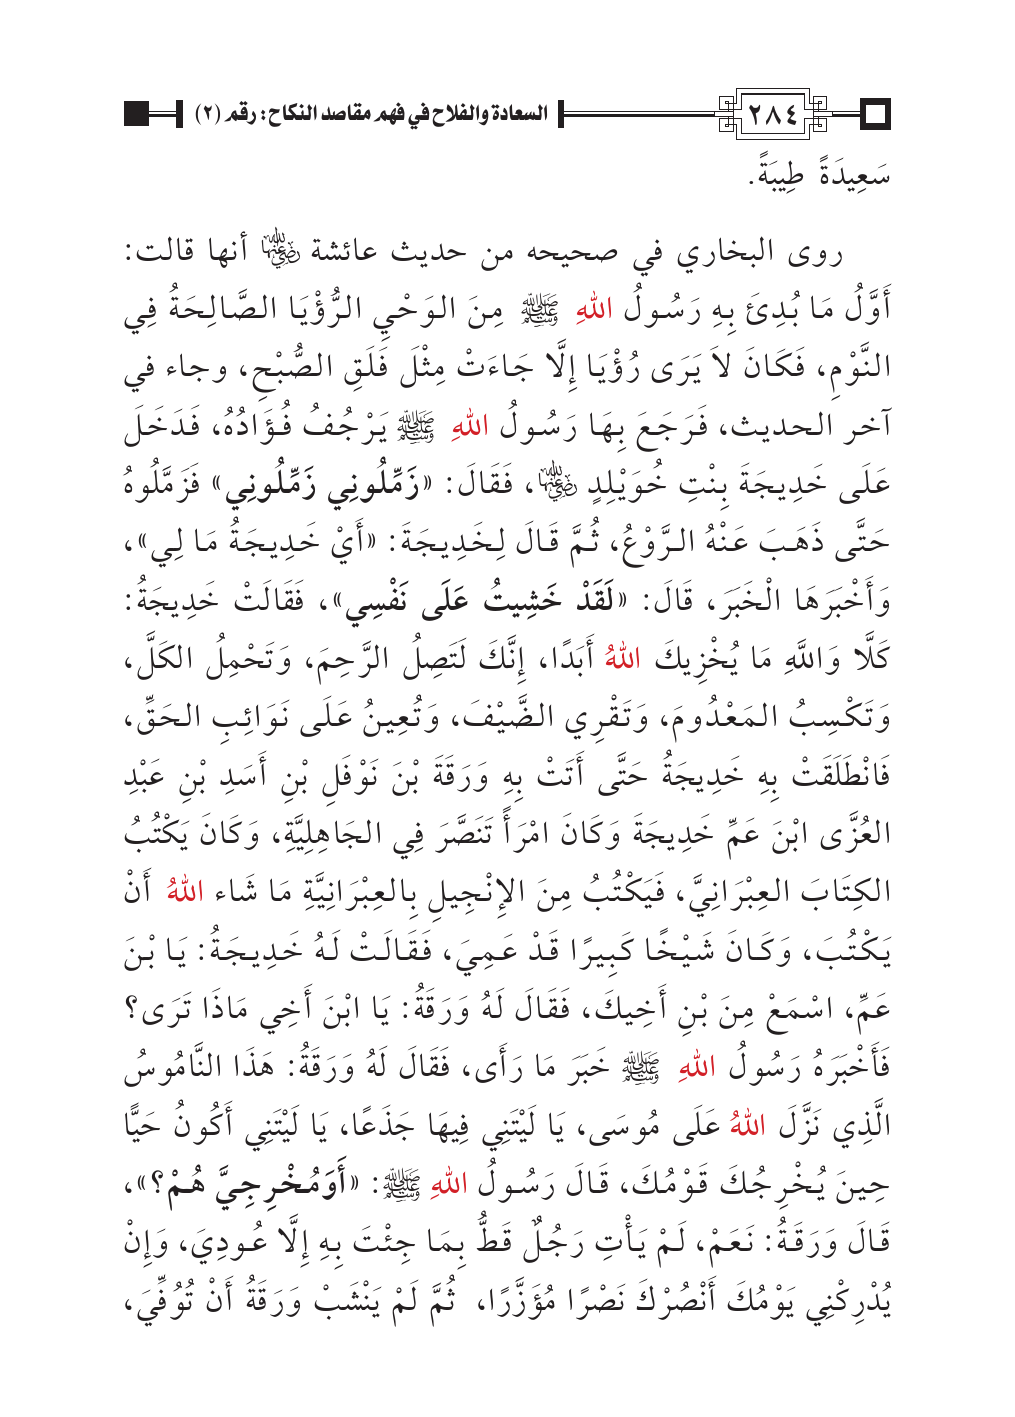 ٢٨٤
السعادة والفلاح في فهم مقاصد النكاح: رقم (٢)
سَعِيدَةً طِيبَةً.
روى البخاري في صحيحه من حديث عائشة رضي الله عنها أنها قالت:
أَوَّلُ مَا بُدِئَ بِهِ رَسُولُ اللهِ ﷺ مِنَ الوَحْيِ الرُّؤْيَا الصَّالِحَةُ فِي
النَّوْمِ، فَكَانَ لاَ يَرَى رُؤْيَا إِلَّا جَاءَتْ مِثْلَ فَلَقِ الصُّبْحِ، وجاء في
آخر الحديث، فَرَجَعَ بِهَا رَسُولُ اللهِ ﷺ يَرْجُفُ فُؤَادُهُ، فَدَخَلَ
عَلَى خَدِيجَةَ بِنْتِ خُوَيْلِدٍ رضي الله عنها، فَقَالَ: «زَمِّلُونِي زَمِّلُونِي» فَزَمَّلُوهُ
حَتَّى ذَهَبَ عَنْهُ الرَّوْعُ، ثُمَّ قَالَ لِخَدِيجَةَ: «أَيْ خَدِيجَةُ مَا لِي»،
وَأَخْبَرَهَا الْخَبَرَ، قَالَ: «لَقَدْ خَشِيتُ عَلَى نَفْسِي»، فَقَالَتْ خَدِيجَةُ:
كَلَّا وَاللَّهِ مَا يُخْزِيكَ اللهُ أَبَدًا، إِنَّكَ لَتَصِلُ الرَّحِمَ، وَتَحْمِلُ الكَلَّ،
وَتَكْسِبُ المَعْدُومَ، وَتَقْرِي الضَّيْفَ، وَتُعِينُ عَلَى نَوَائِبِ الحَقِّ،
فَانْطَلَقَتْ بِهِ خَدِيجَةُ حَتَّى أَتَتْ بِهِ وَرَقَةَ بْنَ نَوْفَلِ بْنِ أَسَدِ بْنِ عَبْدِ
العُزَّى ابْنَ عَمِّ خَدِيجَةَ وَكَانَ امْرَأً تَنَصَّرَ فِي الجَاهِلِيَّةِ، وَكَانَ يَكْتُبُ
الكِتَابَ العِبْرَانِيَّ، فَيَكْتُبُ مِنَ الإِنْجِيلِ بِالعِبْرَانِيَّةِ مَا شَاء اللهُ أَنْ
يَكْتُبَ، وَكَانَ شَيْخًا كَبِيرًا قَدْ عَمِيَ، فَقَالَتْ لَهُ خَدِيجَةُ: يَا بْنَ
عَمِّ، اسْمَعْ مِنَ بْنِ أَخِيكَ، فَقَالَ لَهُ وَرَقَةُ: يَا ابْنَ أَخِي مَاذَا تَرَى؟
فَأَخْبَرَهُ رَسُولُ اللهِ ﷺ خَبَرَ مَا رَأَى، فَقَالَ لَهُ وَرَقَةُ: هَذَا النَّامُوسُ
الَّذِي نَزَّلَ اللهُ عَلَى مُوسَى، يَا لَيْتَنِي فِيهَا جَذَعًا، يَا لَيْتَنِي أَكُونُ حَيًّا
حِينَ يُخْرِجُكَ قَوْمُكَ، قَالَ رَسُولُ اللهِ ﷺ: «أَوَمُخْرِجِيَّ هُمْ؟»،
قَالَ وَرَقَةُ: نَعَمْ، لَمْ يَأْتِ رَجُلٌ قَطُّ بِمَا جِئْتَ بِهِ إِلَّا عُودِيَ، وَإِنْ
يُدْرِكْنِي يَوْمُكَ أَنْصُرْكَ نَصْرًا مُؤَزَّرًا، ثُمَّ لَمْ يَنْشَبْ وَرَقَةُ أَنْ تُوُفِّيَ،